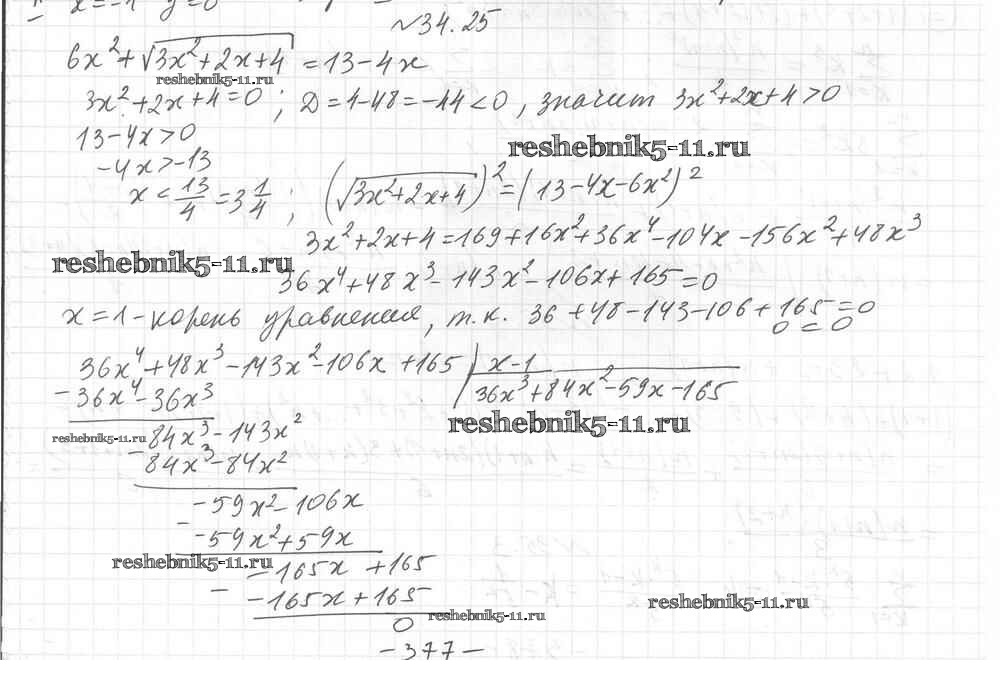 x=-1 y=0
№34.25
6x²+√3x²+2x+4 = 13-4x
reshebnik5-11.ru
3x²+2x+4=0 ; D=4-48=-44<0, значит 3x²+2x+4>0
13-4x>0
reshebnik5-11.ru
-4x>-13
x<13/4=3 1/4 ; (√3x²+2x+4)²=(13-4x-6x²)²
3x²+2x+4=169+16x²+36x⁴-104x-156x²+48x³
reshebnik5-11.ru
36x⁴+48x³-143x²-106x+165=0
x=1-корень уравнения, т.к. 36+48-143-106+165=0
0=0
36x⁴+48x³-143x²-106x+165 | x-1
-36x⁴-36x³ | 36x³+84x²-59x-165
reshebnik5-11.ru
reshebnik5-11.ru
84x³-143x²
-84x³-84x²
-59x²-106x
- -59x²+59x
reshebnik5-11.ru
-165x+165
- -165x+165
reshebnik5-11.ru
reshebnik5-11.ru
0
-377-